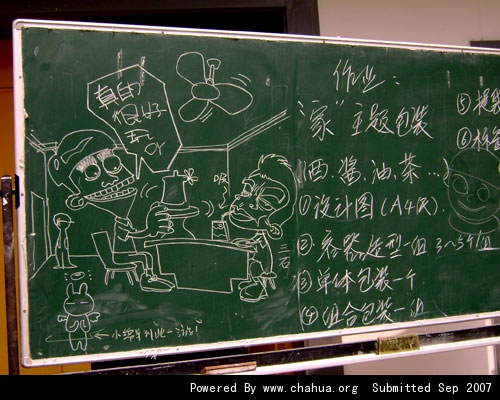 真的
很好
玩
吖
作业:
"家"主题包装
(西.酱.油.茶...)
①设计图(A4大).
②.容器造型一组 3~5个/组
③单体包装一个
④组合包装一组
⑤
⑥
三石
Powered By www.chahua.org Submitted Sep 2007